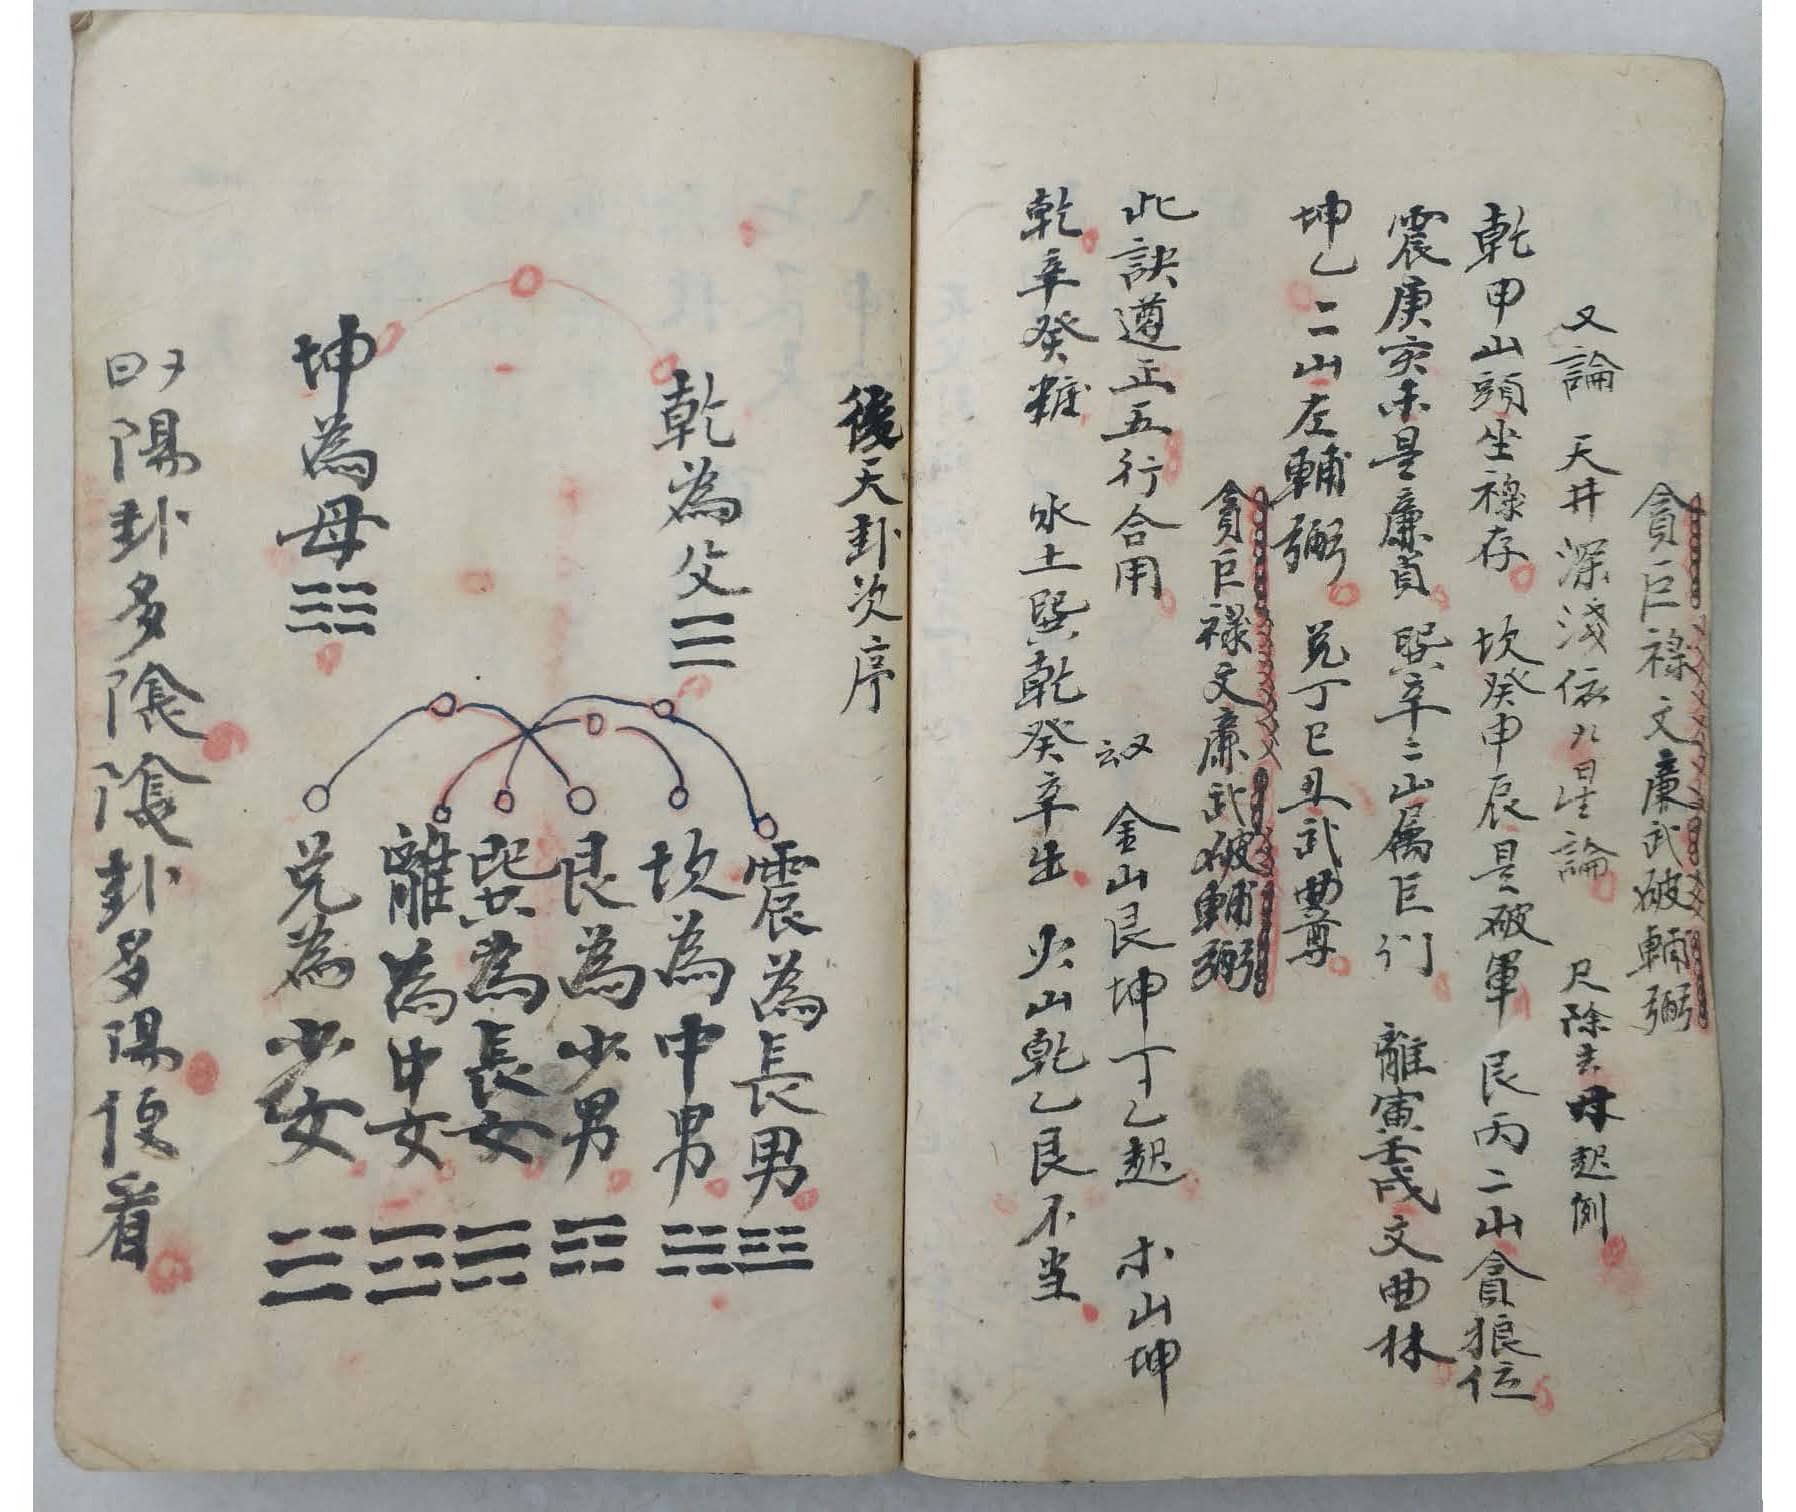 貪巨祿文廉武破輔弼
又論 天井深淺依九星論 尺除去 起例
乾甲山頭坐祿存 坎癸申辰是破軍 艮丙二山貪狼位
震庚亥未是廉貞 巽辛二山屬巨门 離寅壬戌文曲林
坤乙二山左輔弼 兑丁巳丑武曲尊
貪巨祿文廉武破輔弼
此訣遵正五行合用 金山艮坤丁乙起 木山坤
乾辛癸 水土巽乾癸辛出 火山乾乙艮不当
後天卦次序
乾為父☰
坤為母☷
震為長男☳
坎為中男☵
艮為少男☶
巽為長女☴
離為中女☲
兑為少女☱
陽卦多陰陰卦多陽便看